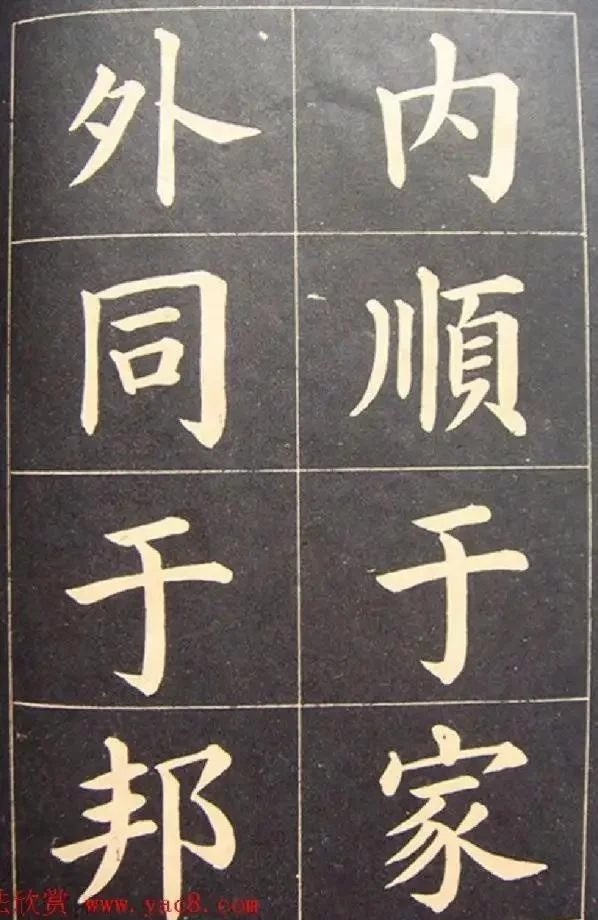 内順于家
外同于邦
法欣赏 www.yac8.com